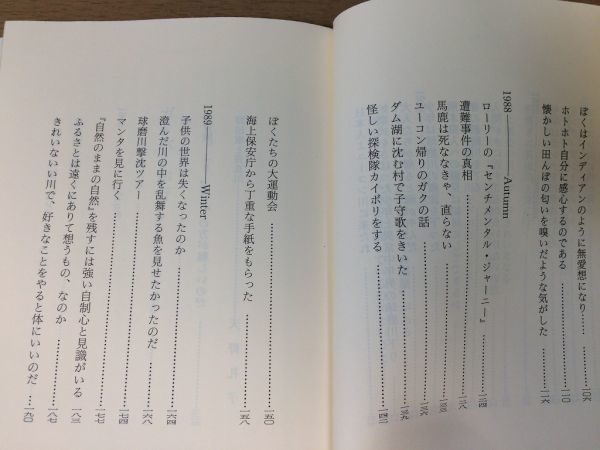 ぼくはインディアンのように無愛想になり……一〇六
ホトホト自分に感心するのである……一一〇
懐かしい田んぼの匂いを嗅いだような気がした……一一六
1988――Autumn
ローリーの『センチメンタル・ジャーニー』……一二四
遭難事件の真相……一二八
馬鹿は死ななきゃ、直らない
ユーコン帰りのガクの話
ダム湖に沈む村で子守歌をきいた
怪しい探検隊カイボリをする……一四二
ぼくたちの大運動会……一五〇
海上保安庁から丁重な手紙をもらった……一五八
1989――Winter
子供の世界は失くなったのか……一六四
澄んだ川の中を乱舞する魚を見せたかったのだ……一六八
球磨川撃沈ツアー
マンタを見に行く……一七四
『自然のままの自然』を残すには強い自制心と見識がいる……一七七
ふるさとは遠くにありて想うもの、なのか……一八三
きれいないい川で、好きなことをやると体にいいのだ……一九〇